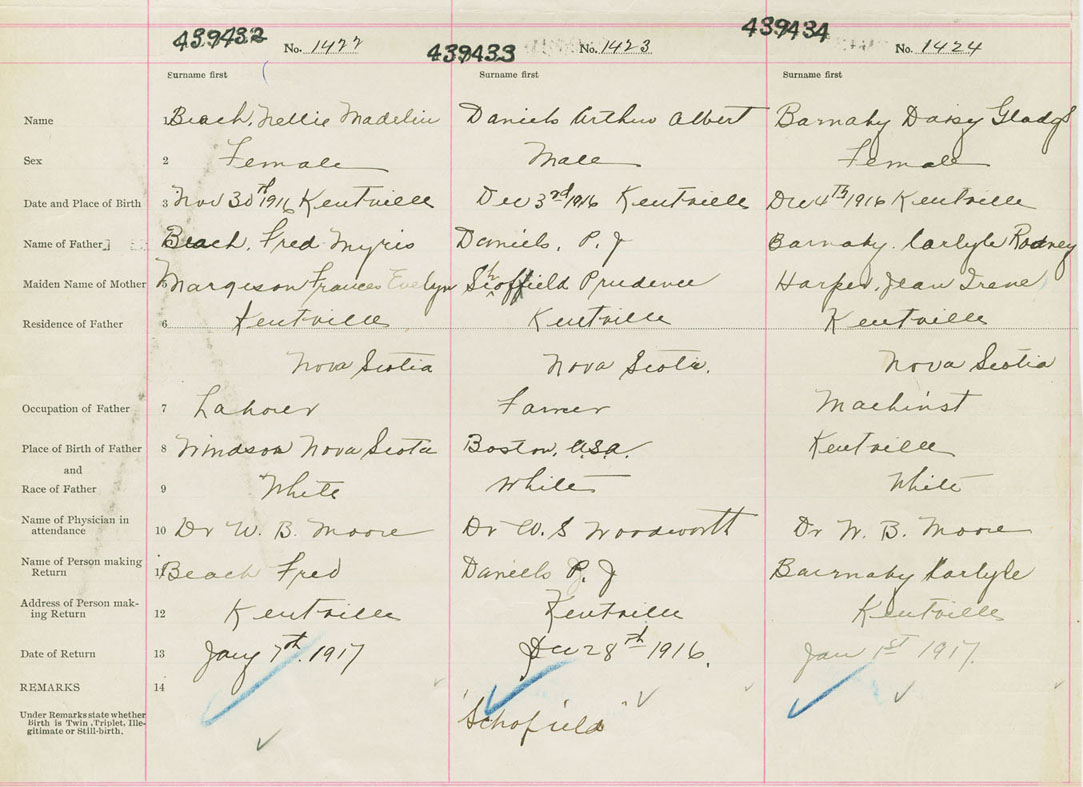 439432 No. 1422 439433 No. 1423 439434 No. 1424
Surname first Surname first Surname first
Name 1 Beach, Nellie Madelin Daniels Arthur Albert Barnaby Daisy Gladys
Sex 2 Female Male Female
Date and Place of Birth 3 Nov 30th 1916 Kentville Dec 3rd 1916 Kentville Dec 4th 1916 Kentville
Name of Father Beach, Fred Myris Daniels, P. J Barnaby. Carlyle Rodney
Maiden Name of Mother 5 Margeson Frances Evelyn Schoffield Prudence Harper, Jean Irene
Residence of Father 6 Kentville Kentville Kentville
Nova Scotia Nova Scotia. Nova Scotia
Occupation of Father 7 Laborer Farmer Machinst
Place of Birth of Father 8 Windsor Nova Scotia Boston, U.S.A. Kentville
and
Race of Father 9 White White White
Name of Physician in
attendance 10 Dr W. B. Moore Dr W. S Woodworth Dr W. B. Moore
Name of Person making
Return 11 Beach Fred Daniels P. J Barnaby Carlyle
Address of Person mak-
ing Return 12 Kentville Kentville Kentville
Date of Return 13 Jany 7th. 1917 Dec 28th 1916. Jan 1st 1917.
REMARKS 14
Under Remarks state whether
Birth is Twin, Triplet, Ille-
gitimate or Still-birth.
"Schofield"